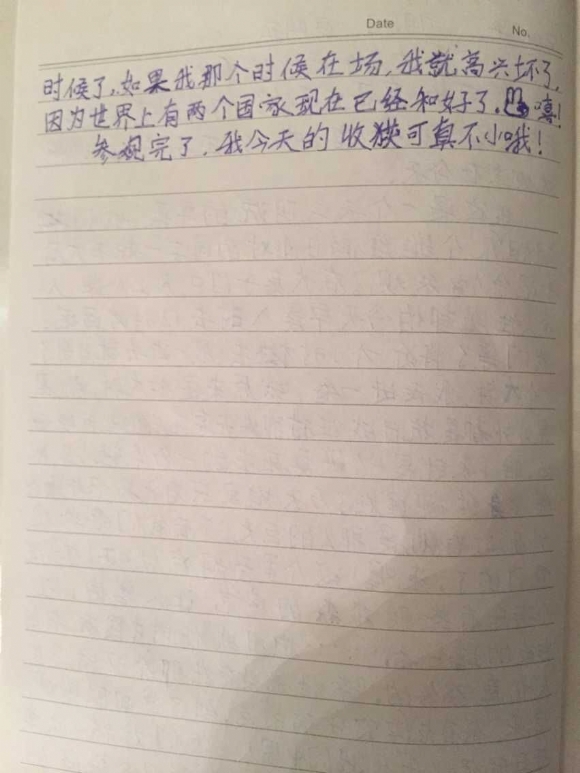 Date
No.
时候了,如果我那个时候在场,我就高兴坏了,
因为世界上有两个国家现在已经和好了,嘻!
参观完了,我今天的收获可真不小哦!